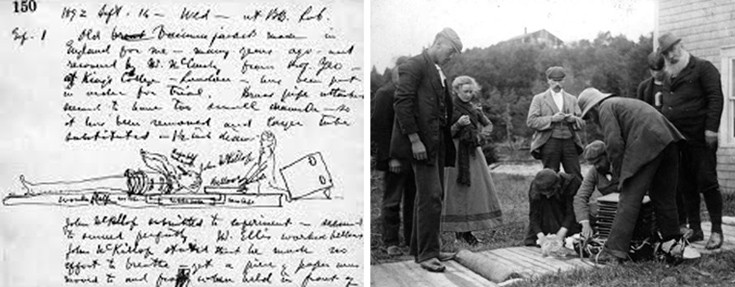 150
1892 Sept. 14 — Wed — at B.B. Lab.
Exp. 1 Old Vacuum jacket made in
England for me — many years ago — and
received by W. McCurdy from Prof Geo —
of King's College — London — has been put
in order for trial. Brass pipe attached
seemed to have too small diameter — so
it has been removed and larger tube
substituted —
John McKillop
John McKillop submitted to experiment — seemed
to succeed perfectly W. Ellis worked bellows
John McKillop stated that he made no
effort to breathe — yet a piece of paper was
moved to and fro when held in front of